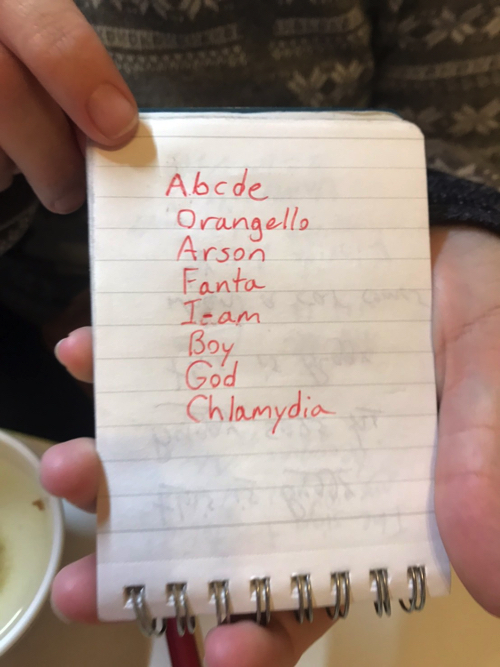 Abcde
Orangello
Arson
Fanta
I-am
Boy
God
Chlamydia